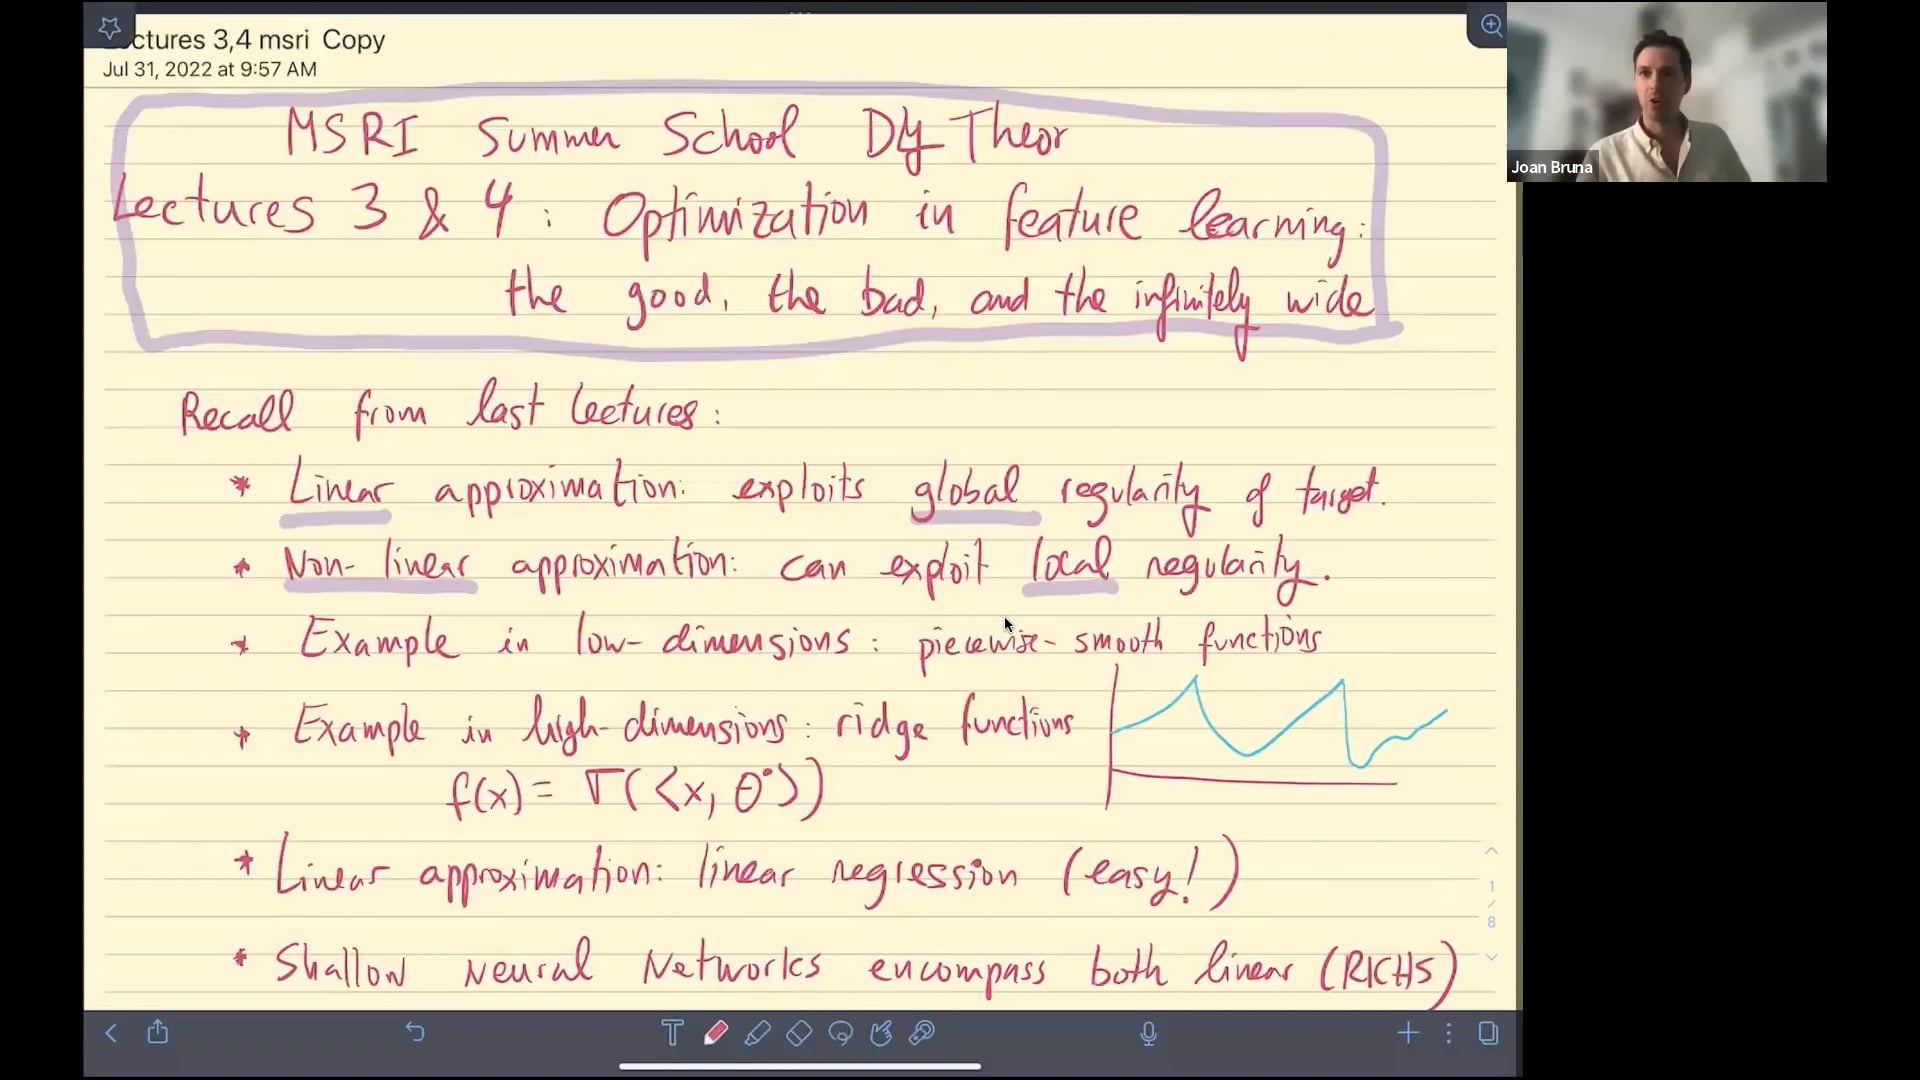 ctures 3,4 msri Copy
Jul 31, 2022 at 9:57 AM
Joan Bruna
MSRI Summer School DL Theor
Lectures 3 & 4: Optimization in feature learning:
the good, the bad, and the infinitely wide
Recall from last lectures:
* Linear approximation: exploits global regularity of target.
* Non-linear approximation: can exploit local regularity.
* Example in low-dimensions: piecewise-smooth functions
* Example in high-dimensions: ridge functions
f(x) = σ(<x, θ*>)
* Linear approximation: linear regression (easy!)
* Shallow Neural Networks encompass both linear (RKHS)
1
/
8
T